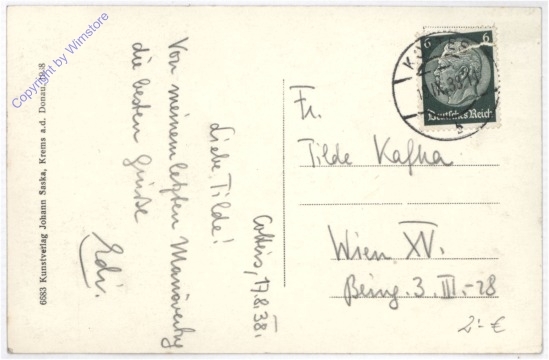 Copyright by Wimstore
6683 Kunstverlag Johann Saska, Krems a.d. Donau
Cotters, 17.8.38.
Liebe Tilde!
Von meinem letzten Manövertag
die besten Grüsse
Edi.
6 6
Deutsches Reich
Fr.
Tilde Kafka
Wien XV.
Being. 3. III.-28
2.- €